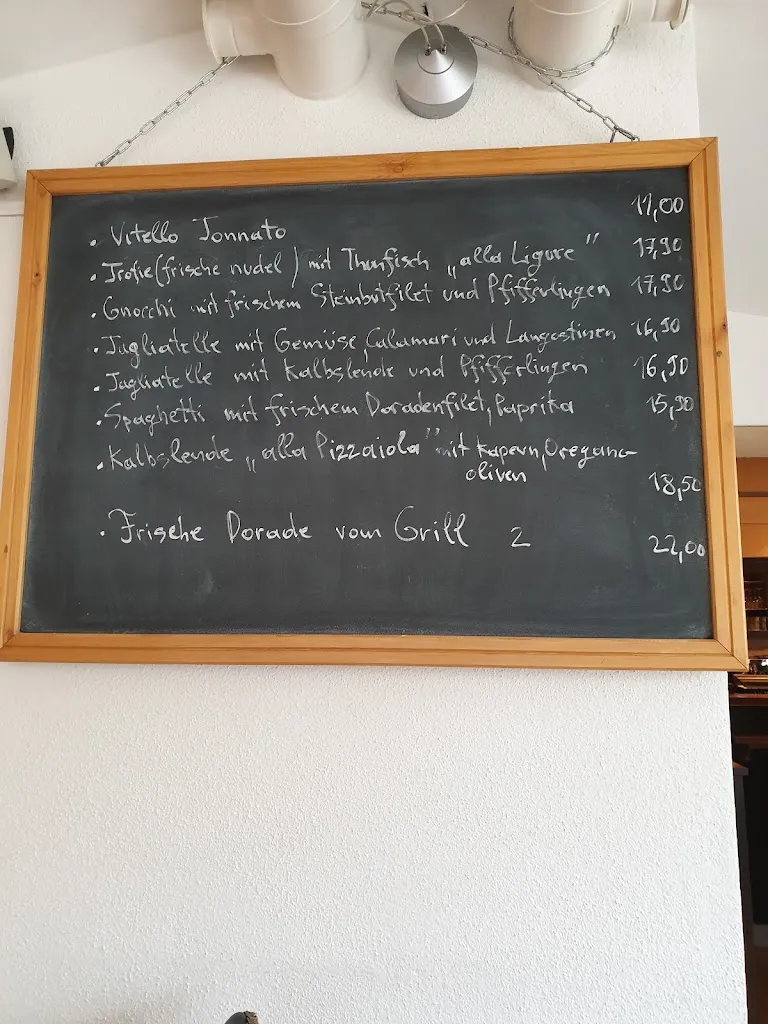 . Vitello Tonnato 11,00
. Trofie (frische nudel) mit Thunfisch „alla Ligure" 17,90
. Gnocchi mit frischem Steinbutfilet und Pfifferlingen 17,90
. Tagliatelle mit Gemüse, Calamari und Langostinen 16,90
. Tagliatelle mit Kalbslende und Pfifferlingen 16,90
. Spaghetti mit frischem Doradenfilet, Paprika 15,90
. Kalbslende „alla Pizzaiola" mit Kapern, Oregano
oliven 18,50
. Frische Dorade vom Grill 2 22,00